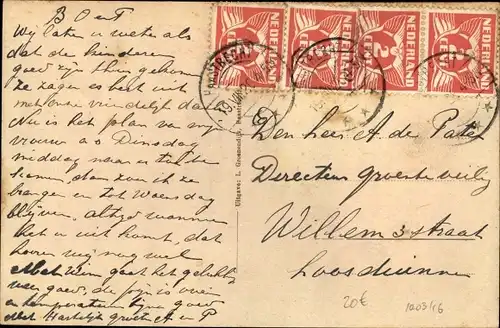 B en T
Wij laten u weten als
dat de kinderen
goed zijn thuis gekomen
ze zagen er best uit
met onze vriendelijk dank
Nu is het plan van mijn
vrouw a s Dinsdag
middag naar u te
komen, dan zou ik ze
brengen en tot Woensdag
blijven. altijd wanneer
het u uit komt, dat
horen wij nog wel
Met Wim gaat het gelukkig
weer goed, de pijn is over
en temperatuur bijna goed
Met Hartelijk groeten A en P
Uitgave: L. Groenendijk,
NEDERLAND
NEDERLAND
NEDERLAND
NEDERLAND
2
Den heer A de Pater
Directeur groente veilig
Willem 3 straat
Loosduinen
20€
10.03/46